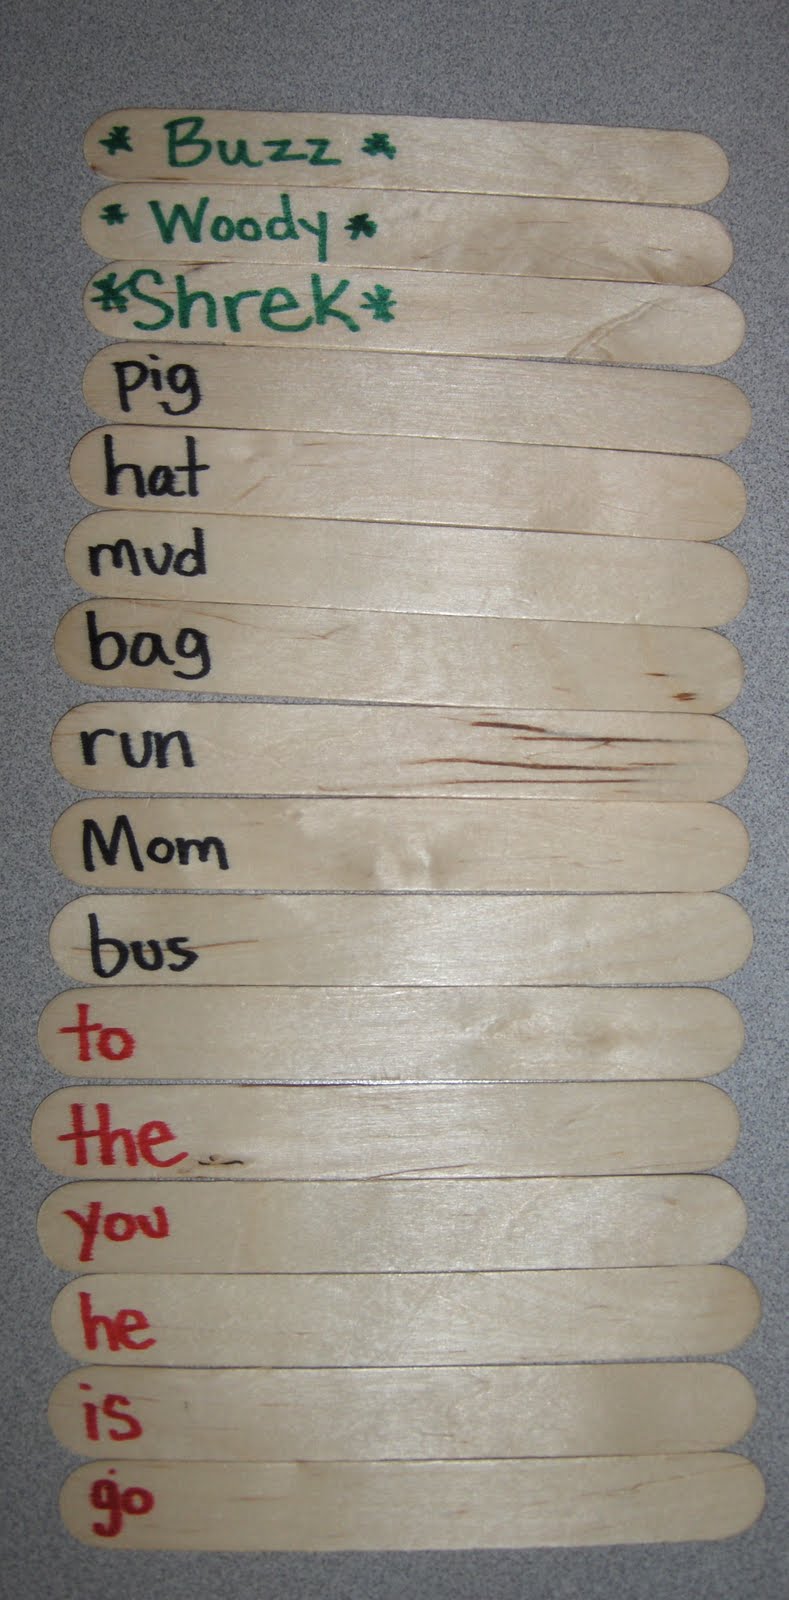 * Buzz *
* Woody *
*Shrek*
pig
hat
mud
bag
run
Mom
bus
to
the
you
he
is
go